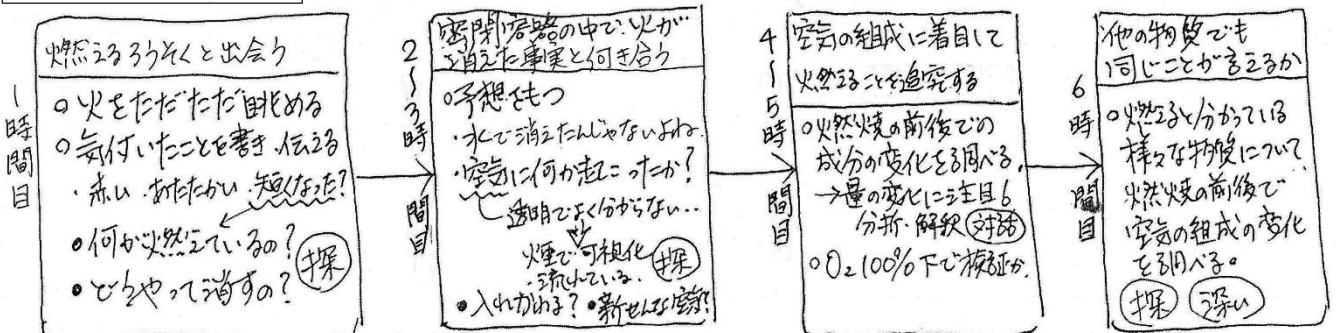 1時間目
燃えるろうそくと出会う
○火をただただ眺める
○気付いたことを書き、伝える
・赤い・あたたかい・短くなった？
●何が燃えているの？
●どうやって消すの？
探
2~3時間目
密閉容器の中で、火が
消えた事実と向き合う
○予想をもつ
・水で消えたんじゃないよね。
・空気に何か起こったか？
透明でよく分からない…
煙で可視化
・流れている。
探
●入れかわる？ ●新せんな空気？
4~5時間目
空気の組成に着目して
燃えることを追究する
○燃焼の前後での
成分の変化を調べる。
→量の変化に注目し
分析・解釈 対話
○O₂100%下で検証
6時間目
他の物質でも
同じことが言えるか
○燃えると分かっている
様々な物質について、
燃焼の前後で
空気の組成の変化
を調べる。
探 深い